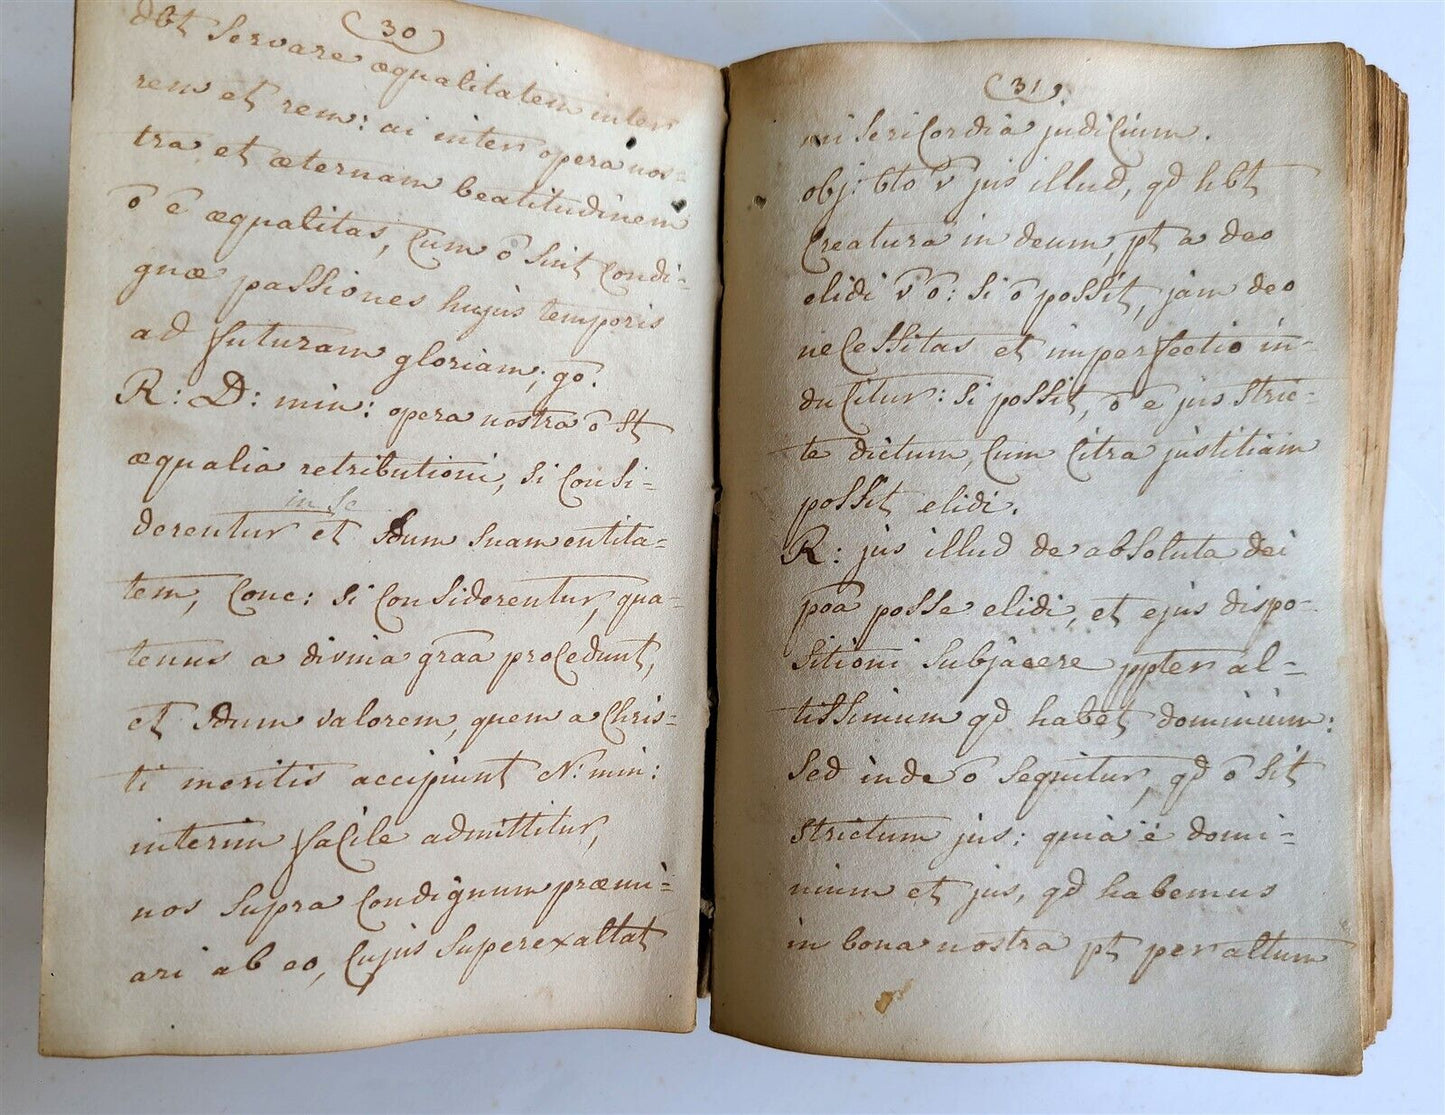 (30)
dbt servare æqualitatem inter
rem et rem: ai inter opera nos=
tra et æternam beatitudinem
ō ē æqualitas, cum ō sint condi=
gnæ passiones hujus temporis
ad futuram gloriam; go.
R: D: min: opera nostra ō st
æqualia retributioni, si consi=
in se
derentur et sdum suam entita=
tem, conc: si considerentur, qua=
tenus a divina graa procedunt,
et sdum valorem, quem a Chris=
ti meritis accipiunt N: min:
interim facile admittitur,
nos supra condignum præmi=
ari ab eo, cujus superexaltat
(31)
misericordia judicium.
obj: bto v̄ jus illud, qd hbt
creatura in deum, pt a deo
elidi v̄ ō: si ō possit, jam deo
necessitas et imperfectio in=
ducitur: si possit, ō ē jus stric=
te dictum, cum citra justitiam
possit elidi.
R: jus illud de absoluta dei
poa posse elidi, et ejus dispo=
sitioni subjacere ppter al=
tissimum qd habet dominium:
sed inde ō sequitur, qd ō sit
strictum jus: quia ē domi=
nium et jus, qd habemus
in bona nostra pt per altum